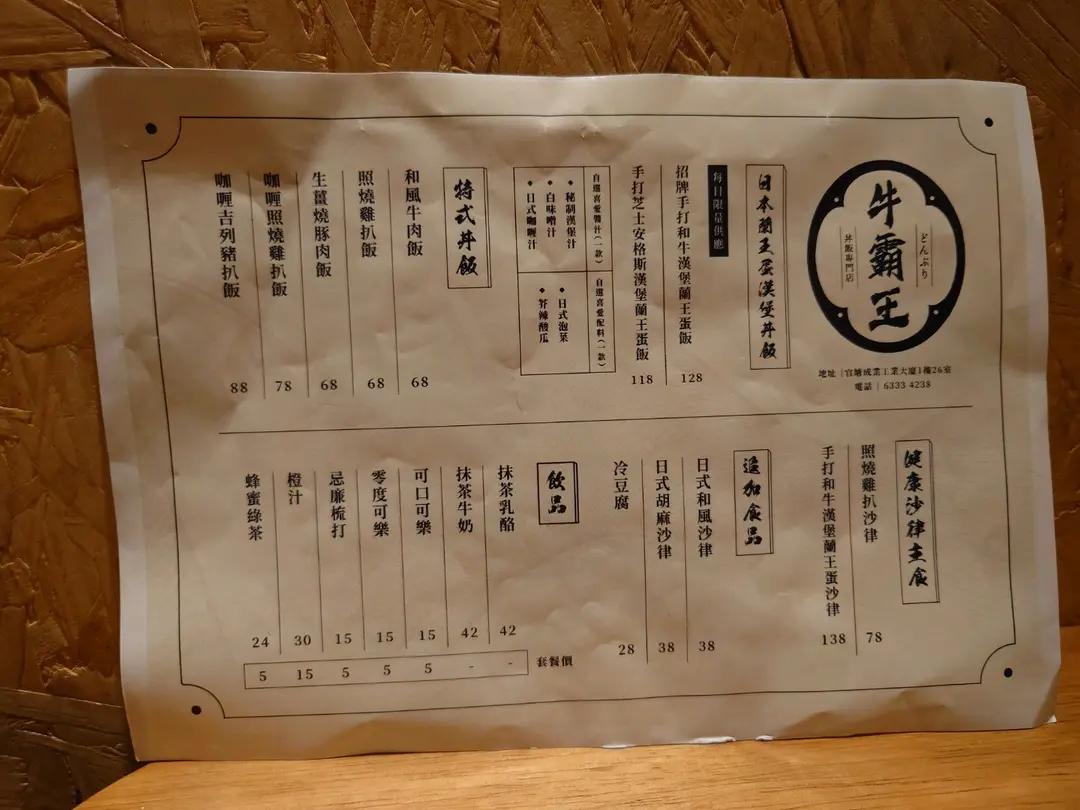 牛霸王
どんぶり
丼飯專門店
地址 | 官塘成業工業大廈1樓26室
電話 | 6333 4238
日本蘭王蛋漢堡丼飯
每日限量供應
招牌手打和牛漢堡蘭王蛋飯 128
手打芝士安格斯漢堡蘭王蛋飯 118
自選喜愛醬汁(一款)
◆ 秘制漢堡汁
◆ 白味噌汁
◆ 日式咖喱汁
自選喜愛配料(一款)
◆ 日式泡菜
◆ 芥辣酸瓜
特式丼飯
和風牛肉飯 68
照燒雞扒飯 68
生薑燒豚肉飯 68
咖喱照燒雞扒飯 78
咖喱吉列豬扒飯 88
健康沙律主食
照燒雞扒沙律 78
手打和牛漢堡蘭王蛋沙律 138
追加食品
日式和風沙律 38
日式胡麻沙律 38
冷豆腐 28
飲品
套餐價
抹茶乳酪 42 -
抹茶牛奶 42 -
可口可樂 15 5
零度可樂 15 5
忌廉梳打 15 5
橙汁 30 15
蜂蜜綠茶 24 5